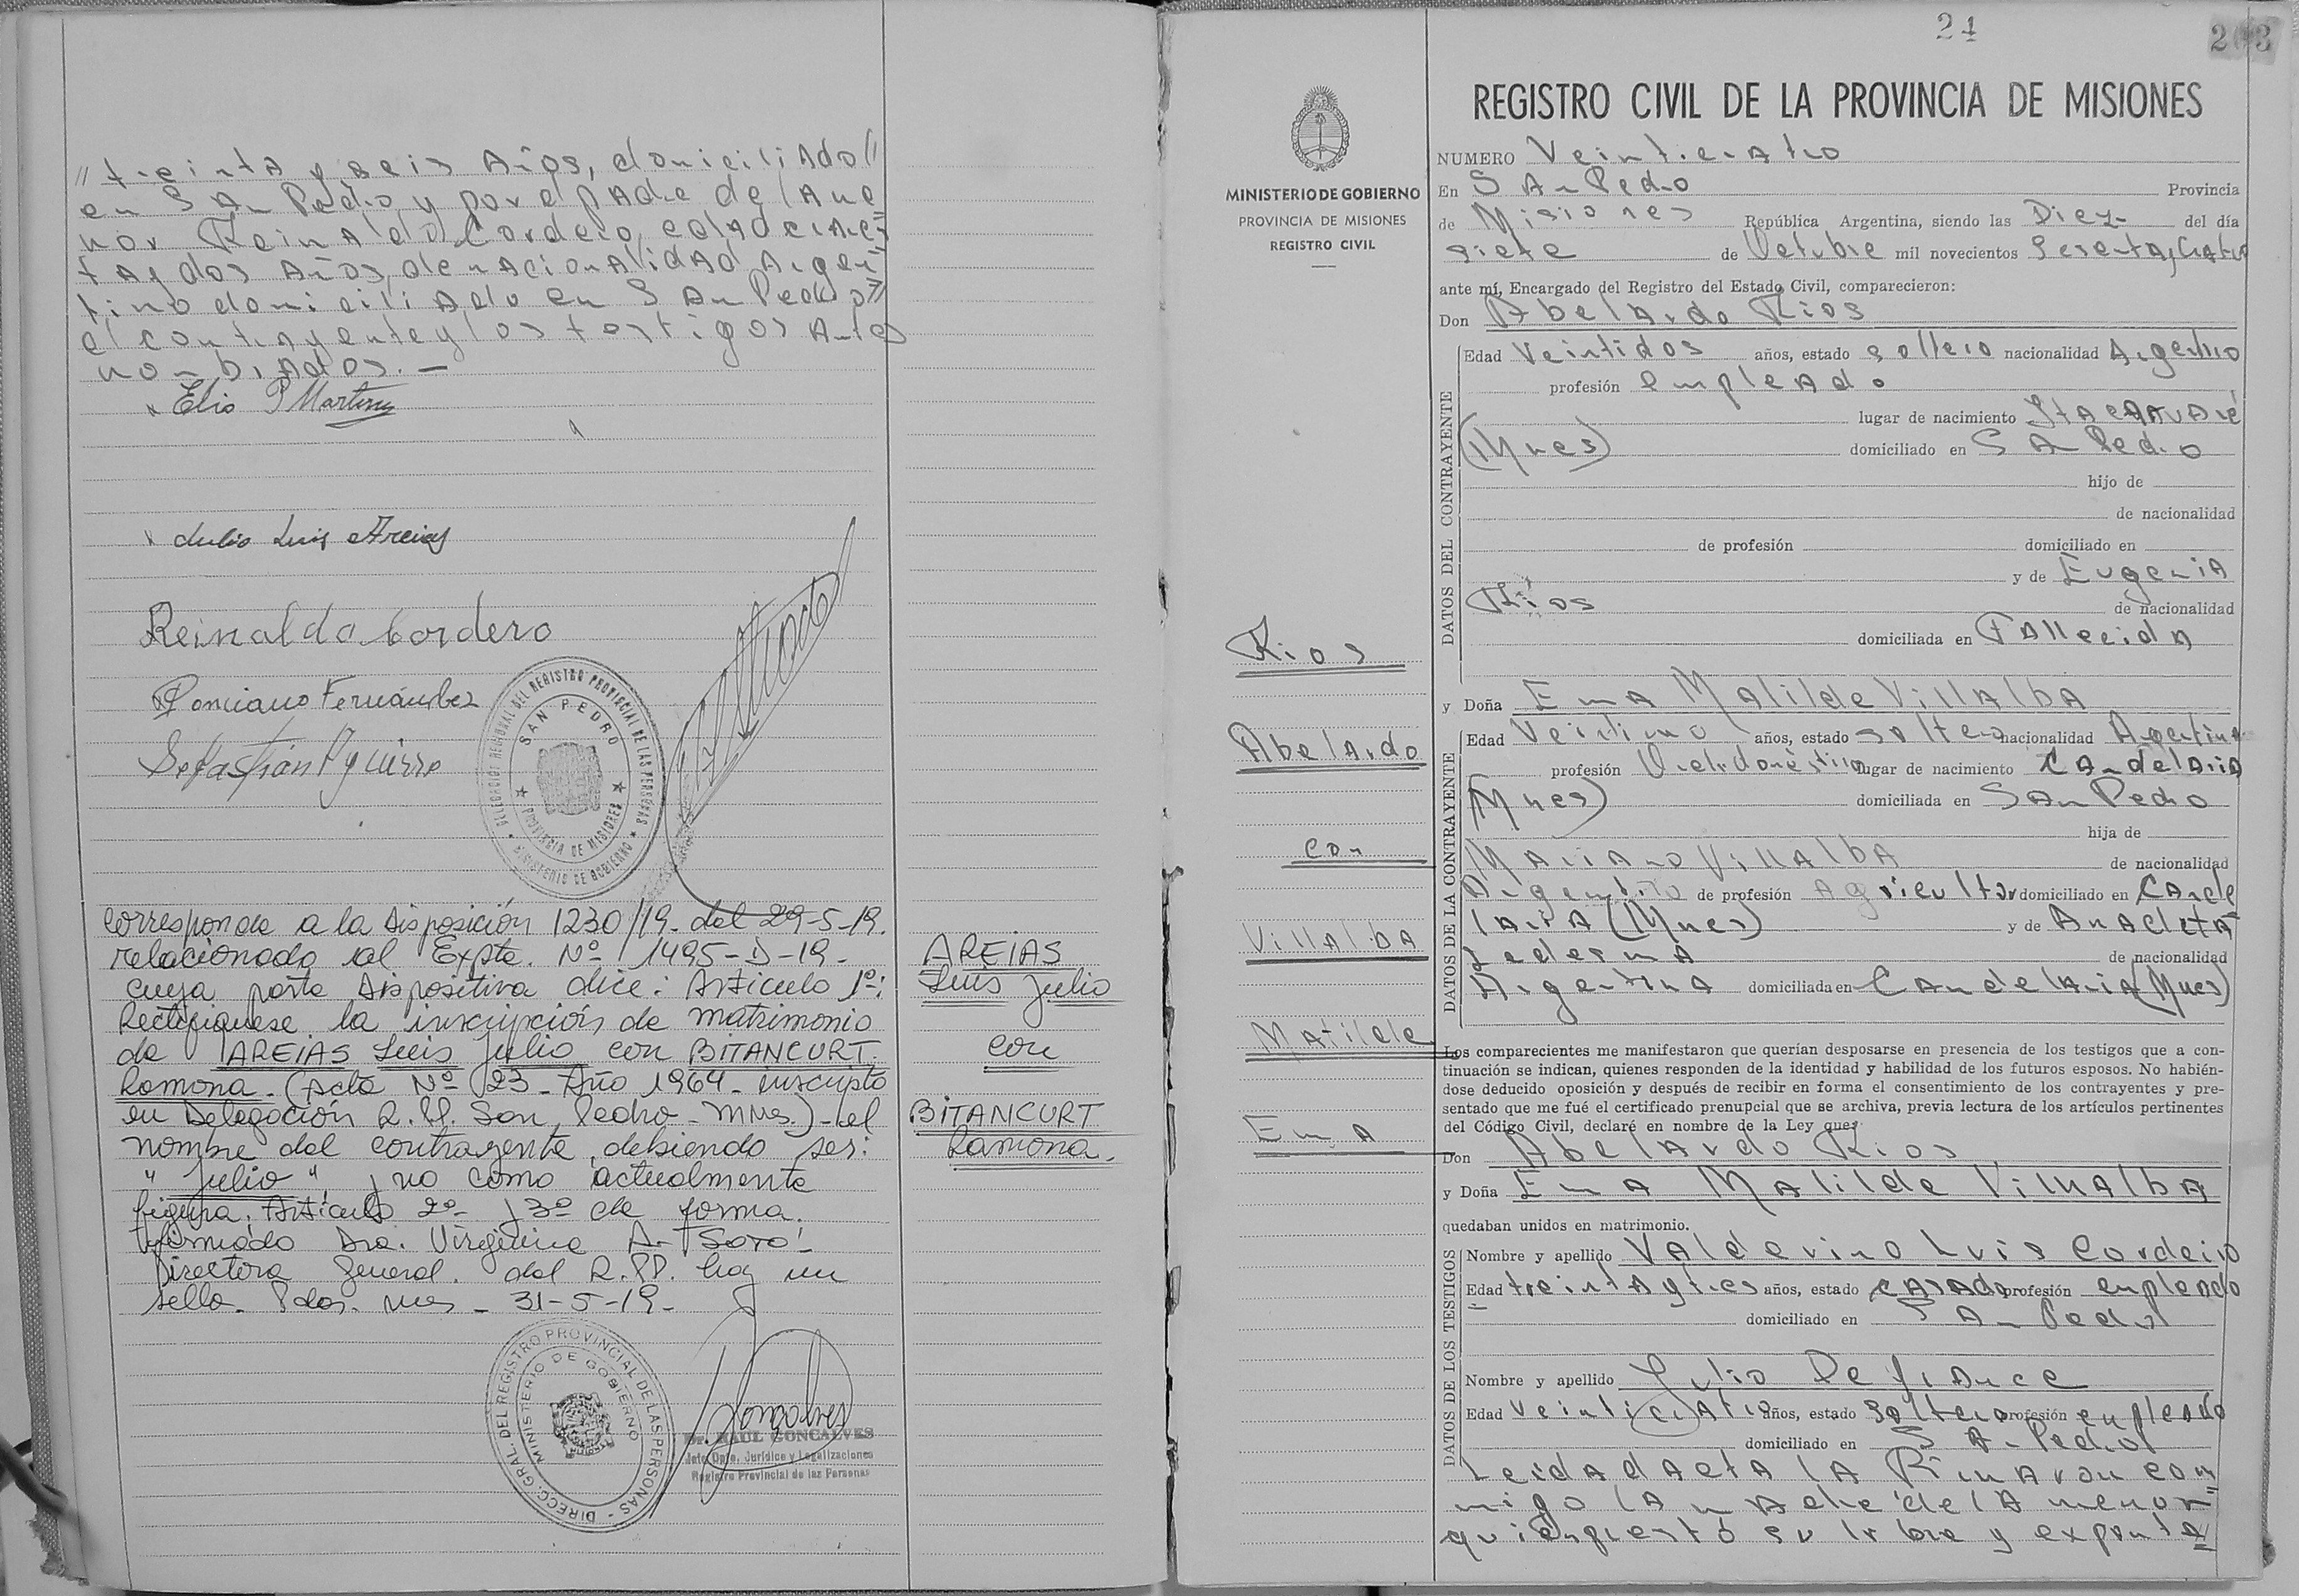 // treinta y seis Años, domiciliado//
en SAn Pedro y por el pAdre de lA me=
nor ReinAldo Cordero edAd cincuen=
tA y dos Años, de nAcionAlidAd Argen=
tino domiciliAdo en SAn Pedro //
el contrAyente y los testigos Antes
nombrAdos.-
Elio P Martinez
Julio Luis Areias
Reinaldo Cordero
Ponciano Fernández
Sebastián Aguirre
DELEGACION REGIONAL DEL REGISTRO PROVINCIAL DE LAS PERSONAS
MINISTERIO DE GOBIERNO
SAN PEDRO
PROVINCIA DE MISIONES
Corresponde a la Disposición 1230/19- del 29-5-19.
relacionado al Expte. Nº 1495-D-19-
cuya parte dispositiva dice: Artículo 1º:
Rectifíquese la inscripción de matrimonio
de AREIAS Luis Julio con BITANCURT
Ramona. (Acta Nº 23- Año 1964- inscripto
en Delegación R.PP. San Pedro- Mnes.)- el
nombre del contrayente, debiendo ser:
"Julio", y no como actualmente
figura. Artículo 2º- y 3º de forma.
firmado Dra. Virginia A-
Directora General. del R.PP. hay un
sello. Pdas. Mnes- 31-5-19-
AREIAS
Luis Julio
con
BITANCURT
Ramona.
DIRECC. GRAL. DEL REGISTRO PROVINCIAL DE LAS PERSONAS
MINISTERIO DE GOBIERNO
Dr. RAUL GONCALVES
Jefe Dpto. Jurídico y Legalizaciones
Registro Provincial de las Personas
24
MINISTERIO DE GOBIERNO
PROVINCIA DE MISIONES
REGISTRO CIVIL
Rios
AbelArdo
con
VillAlbA
MAtilde
EmA
REGISTRO CIVIL DE LA PROVINCIA DE MISIONES
NUMERO VeinticuAtro
En SAn Pedro Provincia
de Misiones República Argentina, siendo las Diez del día
siete de Octubre mil novecientos SesentA y CuAtro
ante mí, Encargado del Registro del Estado Civil, comparecieron:
Don AbelArdo Rios
DATOS DEL CONTRAYENTE
Edad Veintidos años, estado soltero nacionalidad Argentino
profesión empleAdo
lugar de nacimiento ItacAruAré
(Mnes) domiciliado en SAn Pedro
hijo de
de nacionalidad
de profesión domiciliado en
y de EugeniA
Ríos de nacionalidad
domiciliada en FAllecidA
y Doña EmA Matilde VillAlbA
DATOS DE LA CONTRAYENTE
Edad Veintiuno años, estado soltera nacionalidad Argentina
profesión Q.del.doméstico lugar de nacimiento CAndelAriA
(Mnes) domiciliada en SAn Pedro
hija de
MAriAno VillAlbA de nacionalidad
Argentino de profesión Agricultor domiciliado en CAnde
lAriA (Mnes) y de AnAcletA
LedesmA de nacionalidad
ArgentinA domiciliada en CAndelAriA (Mnes)
Los comparecientes me manifestaron que querían desposarse en presencia de los testigos que a con-
tinuación se indican, quienes responden de la identidad y habilidad de los futuros esposos. No habién-
dose deducido oposición y después de recibir en forma el consentimiento de los contrayentes y pre-
sentado que me fué el certificado prenupcial que se archiva, previa lectura de los artículos pertinentes
del Código Civil, declaré en nombre de la Ley que:
Don AbelArdo Rios
y Doña EmA MAtilde VillAlbA
quedaban unidos en matrimonio.
DATOS DE LOS TESTIGOS
Nombre y apellido VAldevino Luis Cordeiro
Edad treintA y tres años, estado CAsAdo profesión empleAdo
domiciliado en SAn Pedro
Nombre y apellido Julio DefrAnce
Edad VeinticuAtro años, estado soltero profesión empleAdo
domiciliado en SAn Pedro
LeidA el ActA lA firmAron con=
migo lA mAdre de lA menor
quien prestó su libre y expontA=